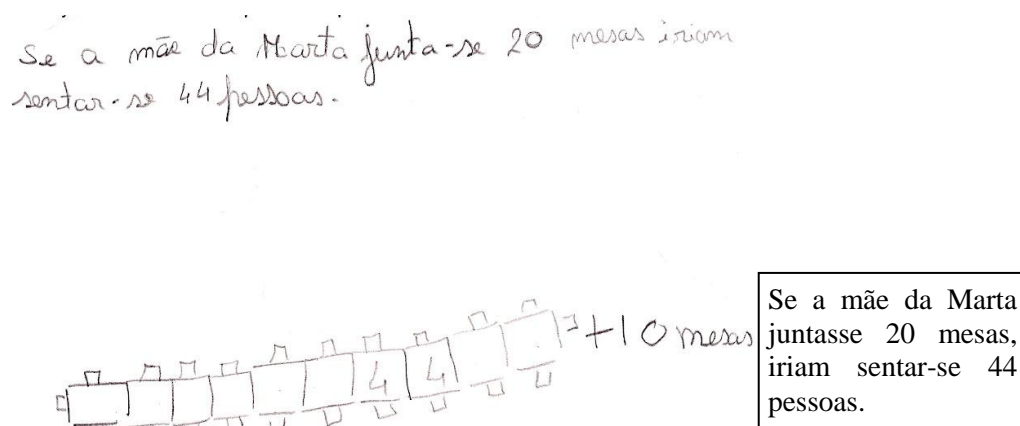 Se a mãe da Marta junta-se 20 mesas iriam
sentar-se 44 pessoas.
4 4
+10 mesas
Se a mãe da Marta
juntasse 20 mesas,
iriam sentar-se 44
pessoas.